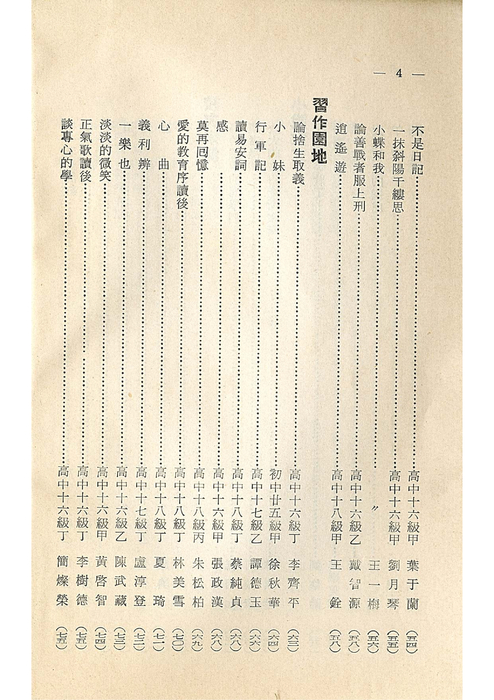 — 4 —
不是日記……高中十六級甲 葉于蘭 (五四)
一抹斜陽千縷思……高中十六級甲 劉月琴 (五五)
小蝶和我……〃 王一樹 (五六)
論善戰者服上刑……高中十六級乙 戴智源 (五八)
逍遙遊……高中十八級甲 王銓 (五八)
習作園地
論捨生取義……高中十六級丁 李齊平 (六三)
小妹……初中廿五級甲 徐秋華 (六四)
行軍記……高中十七級乙 譚德玉 (六六)
讀易安詞……高中十八級丁 蔡純貞 (六八)
感……高中十六級甲 張政漢 (六八)
莫再回憶……高中十八級丙 朱松柏 (六九)
愛的教育序讀後……高中十八級丁 林美雪 (七〇)
心曲……高中十八級丁 夏琦 (七一)
義利辨……高中十七級丁 盧淳登 (七二)
一樂也……高中十六級乙 陳武藏 (七三)
淡淡的微笑……高中十六級甲 黃啓智 (七四)
正氣歌讀後……高中十六級丁 李樹德 (七五)
談專心的學……高中十六級丁 簡燦榮 (七五)